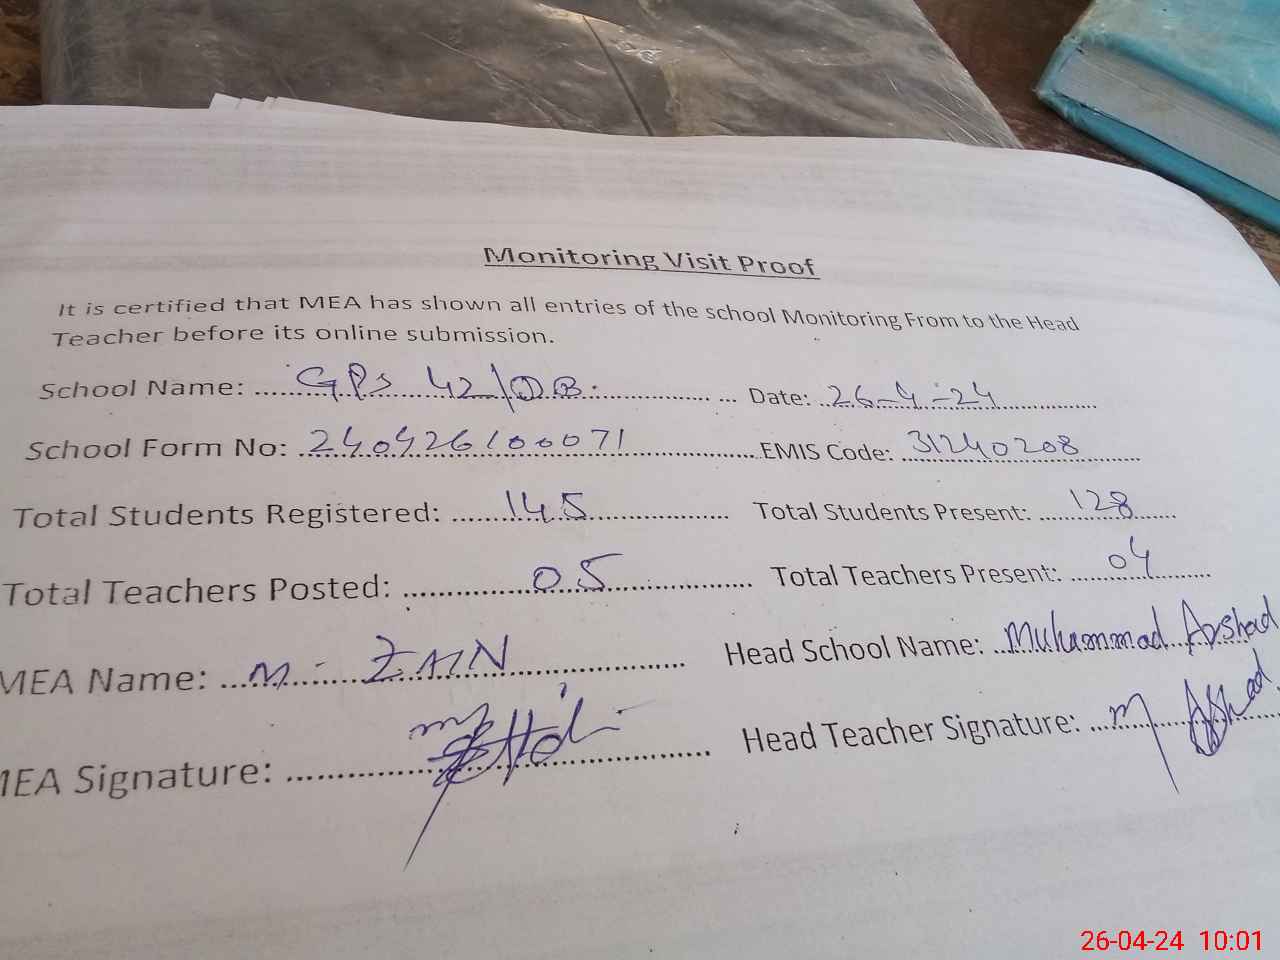 Monitoring Visit Proof
It is certified that MEA has shown all entries of the school Monitoring From to the Head
Teacher before its online submission.
School Name: GPS 42/DB. Date: 26-4-24
School Form No: 240426100071 EMIS Code: 31240208
Total Students Registered: 145 Total Students Present: 128
Total Teachers Posted: 05 Total Teachers Present: 04
MEA Name: M. ZAIN Head School Name: Muhammad Arshad
MEA Signature: Head Teacher Signature: M Arshad
26-04-24 10:01